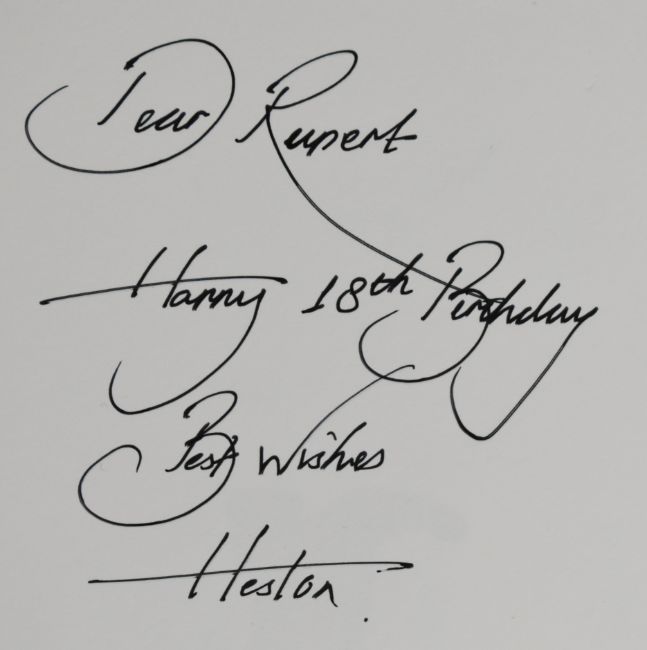 Dear Rupert
Happy 18th Birthday
Best Wishes
Heston.